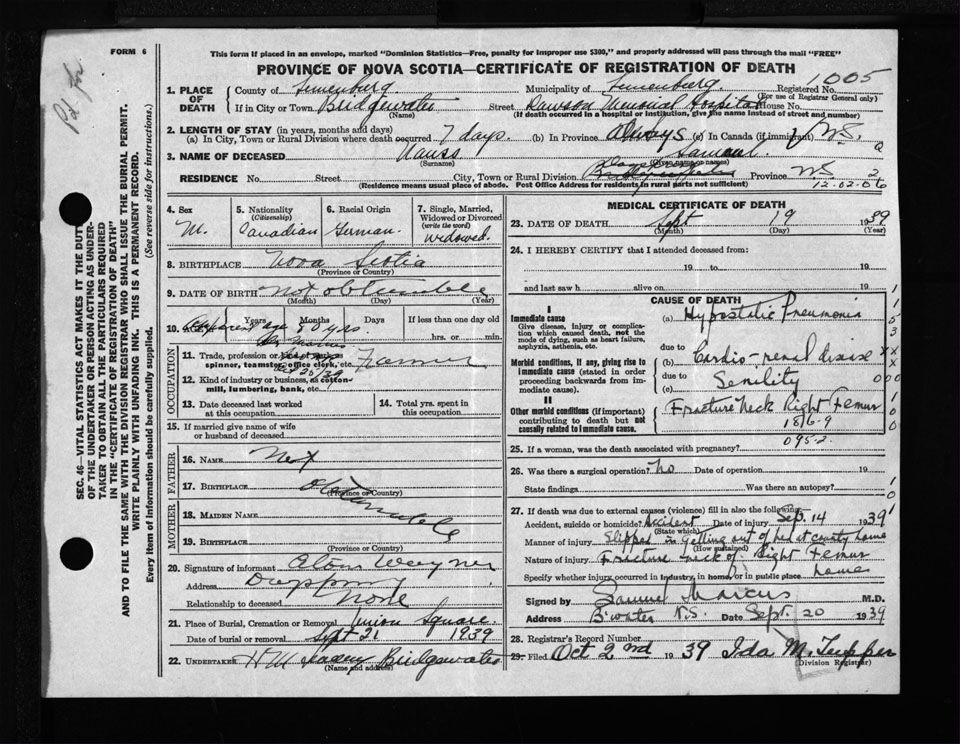 FORM 6
This form if placed in an envelope, marked "Dominion Statistics—Free, penalty for improper use $300," and properly addressed will pass through the mail "FREE"
PROVINCE OF NOVA SCOTIA—CERTIFICATE OF REGISTRATION OF DEATH
Pd for
SEC. 46—VITAL STATISTICS ACT MAKES IT THE DUTY
OF THE UNDERTAKER OR PERSON ACTING AS UNDER-
TAKER TO OBTAIN ALL THE PARTICULARS REQUIRED
IN THE "CERTIFICATE OF REGISTRATION OF DEATH"
AND TO FILE THE SAME WITH THE DIVISION REGISTRAR WHO SHALL ISSUE THE BURIAL PERMIT.
WRITE PLAINLY WITH UNFADING INK. THIS IS A PERMANENT RECORD.
Every item of information should be carefully supplied. (See reverse side for instructions.)
1. PLACE OF DEATH County of Lunenburg Municipality of Lunenburg Registered No. 1005
(For use of Registrar General only)
If in City or Town Bridgewater Street Dawson Memorial Hospital House No.
(Name) (If death occurred in a hospital or institution, give the name instead of street and number)
2. LENGTH OF STAY (in years, months and days)
(a) In City, Town or Rural Division where death occurred 7 days. (b) In Province always (c) In Canada (if immigrant)
3. NAME OF DECEASED Hauss Samuel
(Surname) (Given name or names)
RESIDENCE No. Street City, Town or Rural Division Province NS
(Residence means usual place of abode. Post Office Address for residents in rural parts not sufficient) 12-02-06
4. Sex M.
5. Nationality (Citizenship) Canadian
6. Racial Origin German.
7. Single, Married, Widowed or Divorced (write the word) widowed.
8. BIRTHPLACE Nova Scotia
(Province or Country)
9. DATE OF BIRTH not obtainable
(Month) (Day) (Year)
10. Apparent age 80 yrs. Years Months Days If less than one day old
hrs. or min.
OCCUPATION
11. Trade, profession or kind of work as spinner, teamster, office clerk, etc. Farmer
12. Kind of industry or business, as cotton-mill, lumbering, bank, etc.
13. Date deceased last worked at this occupation
14. Total yrs. spent in this occupation
15. If married give name of wife or husband of deceased
FATHER
16. NAME Not
17. BIRTHPLACE obtainable
(Province or Country)
MOTHER
18. MAIDEN NAME
19. BIRTHPLACE
(Province or Country)
20. Signature of informant
Address
Relationship to deceased None
21. Place of Burial, Cremation or Removal Union Square
Date of burial or removal Sept 21 1939
22. UNDERTAKER Bridgewater
(Name and address)
MEDICAL CERTIFICATE OF DEATH
23. DATE OF DEATH Sept 19 1939
(Month) (Day) (Year)
24. I HEREBY CERTIFY that I attended deceased from:
19 to 19
and last saw h alive on 19
CAUSE OF DEATH
I
Immediate cause (a) Hypostatic Pneumonia
Give disease, injury or complication which caused death, not the mode of dying, such as heart failure, asphyxia, asthenia, etc.
due to
Morbid conditions, if any, giving rise to immediate cause (stated in order proceeding backwards from immediate cause). (b) Cardio-renal disease
due to
(c) Senility
II
Other morbid conditions (if important) contributing to death but not causally related to immediate cause. Fracture Neck Right Femur
186-9
095-2
25. If a woman, was the death associated with pregnancy?
26. Was there a surgical operation? No Date of operation 19
State findings Was there an autopsy?
27. If death was due to external causes (violence) fill in also the following:
Accident, suicide or homicide? Accident Date of injury Sep. 14 1939
(State which)
Manner of injury Slipped in getting out of bed at county home
(How sustained)
Nature of injury Fracture neck of Right Femur
Specify whether injury occurred in industry, in home, or in public place home
Signed by Samuel Marcus M.D.
Address B'water N.S. Date Sept. 20 1939
28. Registrar's Record Number
29. Filed Oct 2nd 1939 Ida M. Tupper
(Division Registrar)